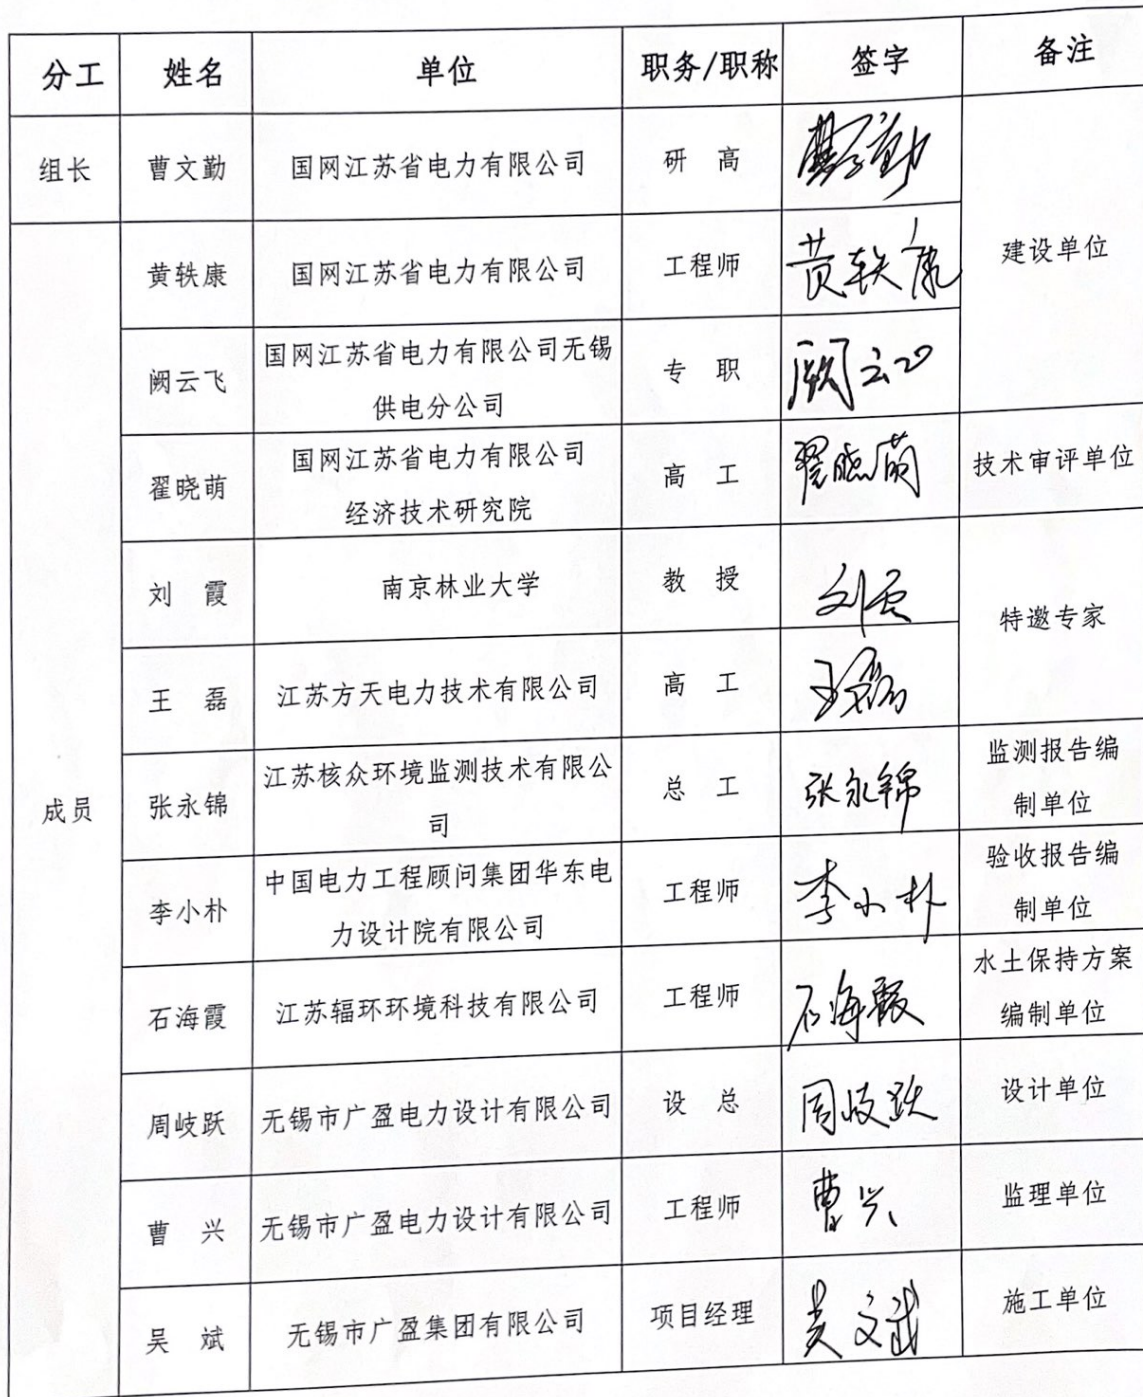 分工 姓名 单位 职务/职称 签字 备注
组长 曹文勤 国网江苏省电力有限公司 研 高 曹文勤
黄轶康 国网江苏省电力有限公司 工程师 黄轶康 建设单位
阙云飞 国网江苏省电力有限公司无锡
供电分公司 专 职 阙云飞
翟晓萌 国网江苏省电力有限公司
经济技术研究院 高 工 翟晓萌 技术审评单位
刘 霞 南京林业大学 教 授 刘霞
特邀专家
王 磊 江苏方天电力技术有限公司 高 工 王磊
成员
张永锦 江苏核众环境监测技术有限公
司 总 工 张永锦 监测报告编
制单位
李小朴 中国电力工程顾问集团华东电
力设计院有限公司 工程师 李小朴 验收报告编
制单位
石海霞 江苏辐环环境科技有限公司 工程师 石海霞 水土保持方案
编制单位
周岐跃 无锡市广盈电力设计有限公司 设 总 周岐跃 设计单位
曹 兴 无锡市广盈电力设计有限公司 工程师 曹兴 监理单位
吴 斌 无锡市广盈集团有限公司 项目经理 吴斌 施工单位